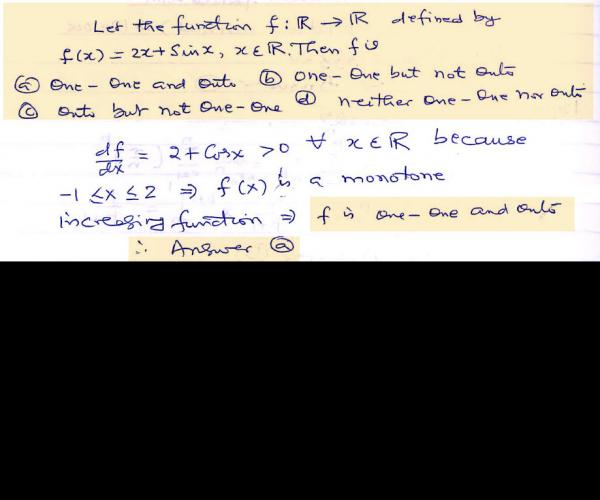 Let the function f : ℝ → ℝ defined by
f(x) = 2x + Sinx, x ∈ ℝ. Then f is
ⓐ One-One and Onto ⓑ One-One but not Onto
ⓒ Onto but not One-One ⓓ neither One-One nor Onto
df/dx = 2 + Cosx > 0 ∀ x ∈ ℝ because
-1 ≤ x ≤ 2 ⇒ f(x) is a monotone
increasing function ⇒ f is one-one and onto
∴ Answer ⓐ